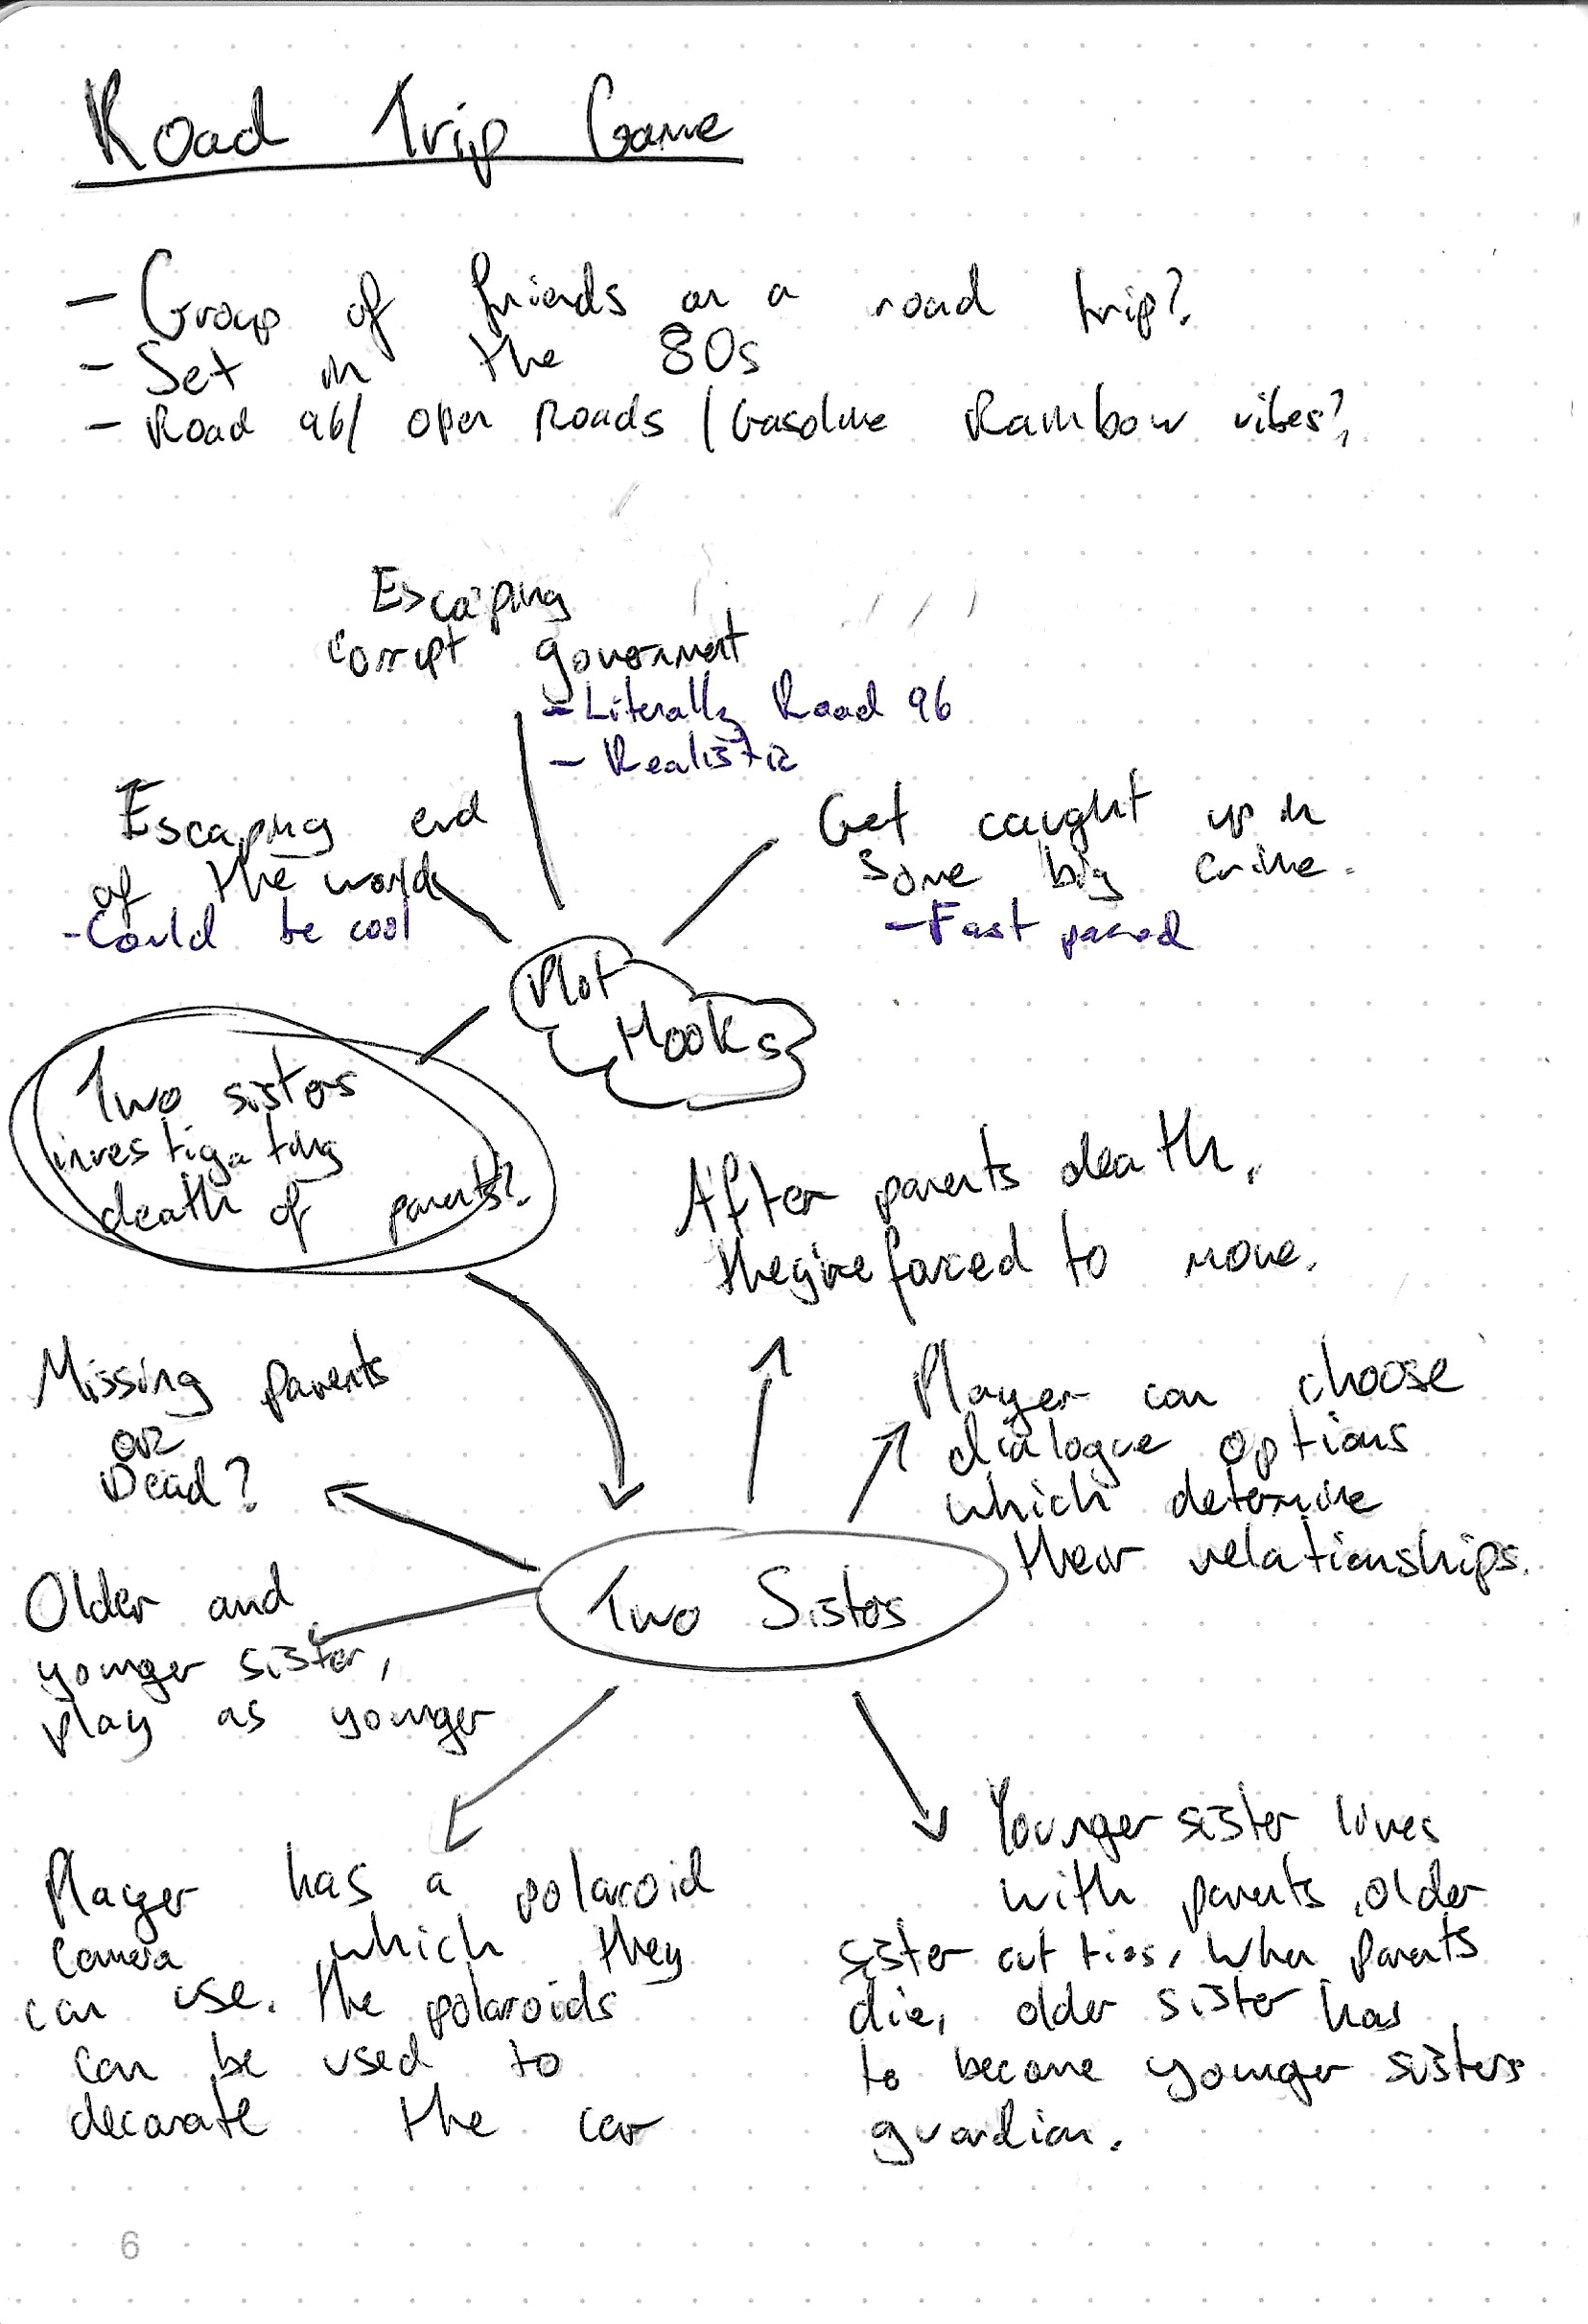 Road Trip Game
- Group of friends on a road trip?
- Set in the 80s
- Road 96/ Open Roads / Gasoline Rainbow vibes?
Escaping
corrupt government
- Literally Road 96
- Realistic
Escaping end
of the world
- Could be cool
Get caught up in
some big crime.
- Fast paced
Plot
Hooks
Two sisters
investigating
death of parents?
After parents death,
they're forced to move.
Missing parents
OR
Dead?
Player can choose
dialogue options
which determine
their relationships.
Two Sisters
Older and
younger sister,
play as younger
Player has a polaroid
camera which they
can use. The polaroids
can be used to
decorate the car
Younger sister lives
with parents, older
sister cut ties, when parents
die, older sister has
to become younger sisters
guardian.
6